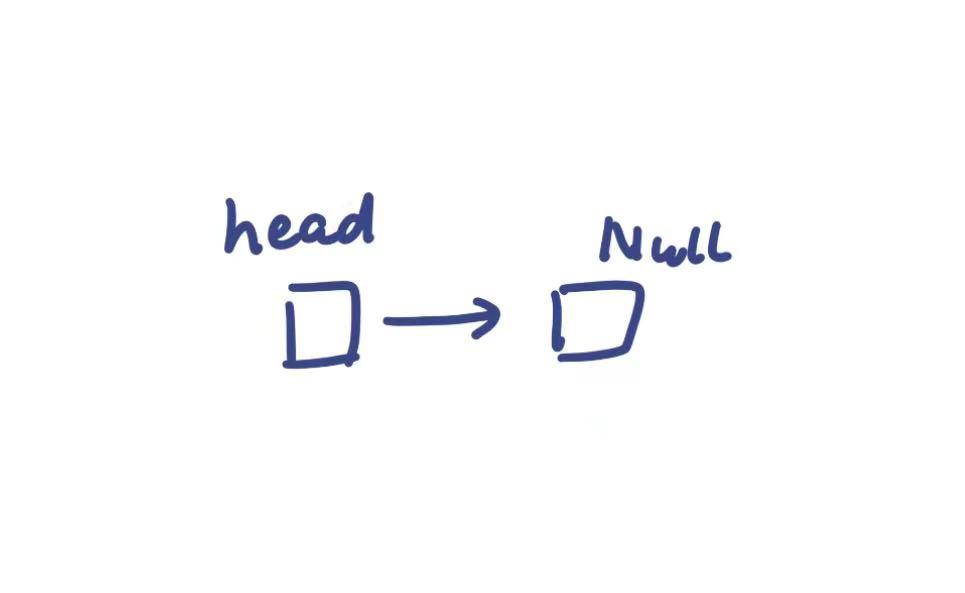 head
Null